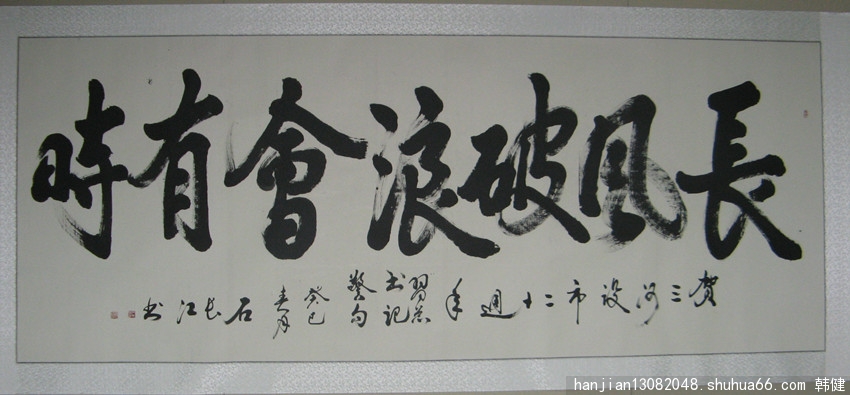 長風破浪會有時
賀三河設市二十週年
習总
书記
警句
癸巳
春月
石长江书
hanjian13082048.shuhua66.com 韩健